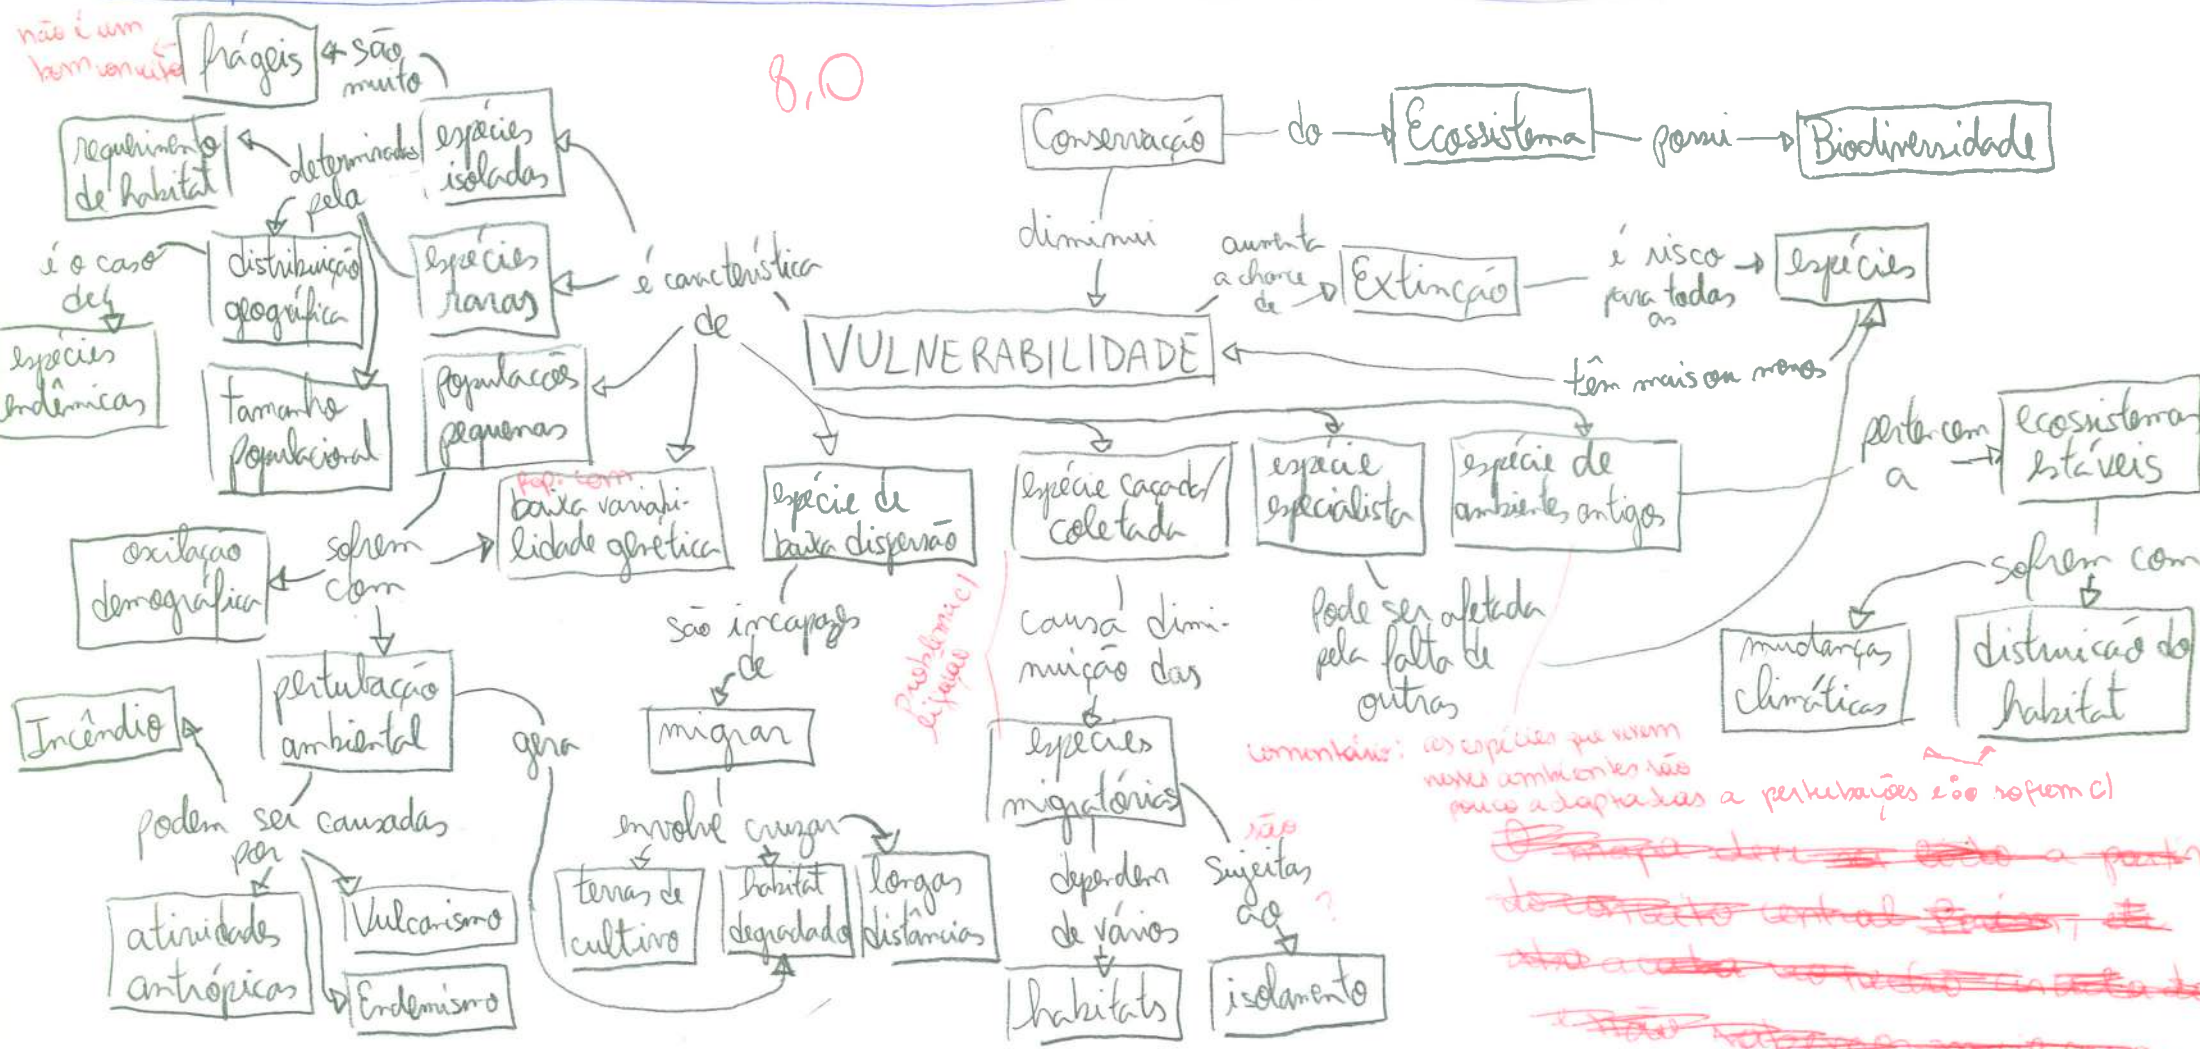 não é um
bom conceito
frágeis
são
muito
8,0
Conservação
do
Ecossistema
possui
Biodiversidade
requerimento
de habitat
determinadas
pela
espécies
isoladas
diminui
aumenta
a chance
de
Extinção
é risco
para todas
as
espécies
é o caso
de
distribuição
geográfica
espécies
raras
é característica
de
VULNERABILIDADE
têm mais ou menos
espécies
endêmicas
tamanho
populacional
populações
pequenas
pop. com
baixa variabi-
lidade genética
espécie de
baixa dispersão
espécie caçada/
coletada
espécie
especialista
espécie de
ambientes antigos
pertencem
a
ecossistemas
estáveis
oxilação
demográfica
sofrem
com
são incapazes
de
Problema c/
ligação
causa dimi-
nuição das
Pode ser afetada
pela falta de
outras
sofrem com
mudanças
climáticas
distruicão do
habitat
pertubação
ambiental
Incêndio
gera
migrar
espécies
migratórias
comentário: as espécies que vivem
nesses ambientes são
pouco adaptadas a perturbações e só sofrem c/
podem ser causadas
por
envolve cruzar
dependem
de vários
são
sujeitas
ao
?
atividades
antrópicas
Vulcanismo
Endemismo
terras de
cultivo
habitat
degradado
longas
distâncias
habitats
isolamento